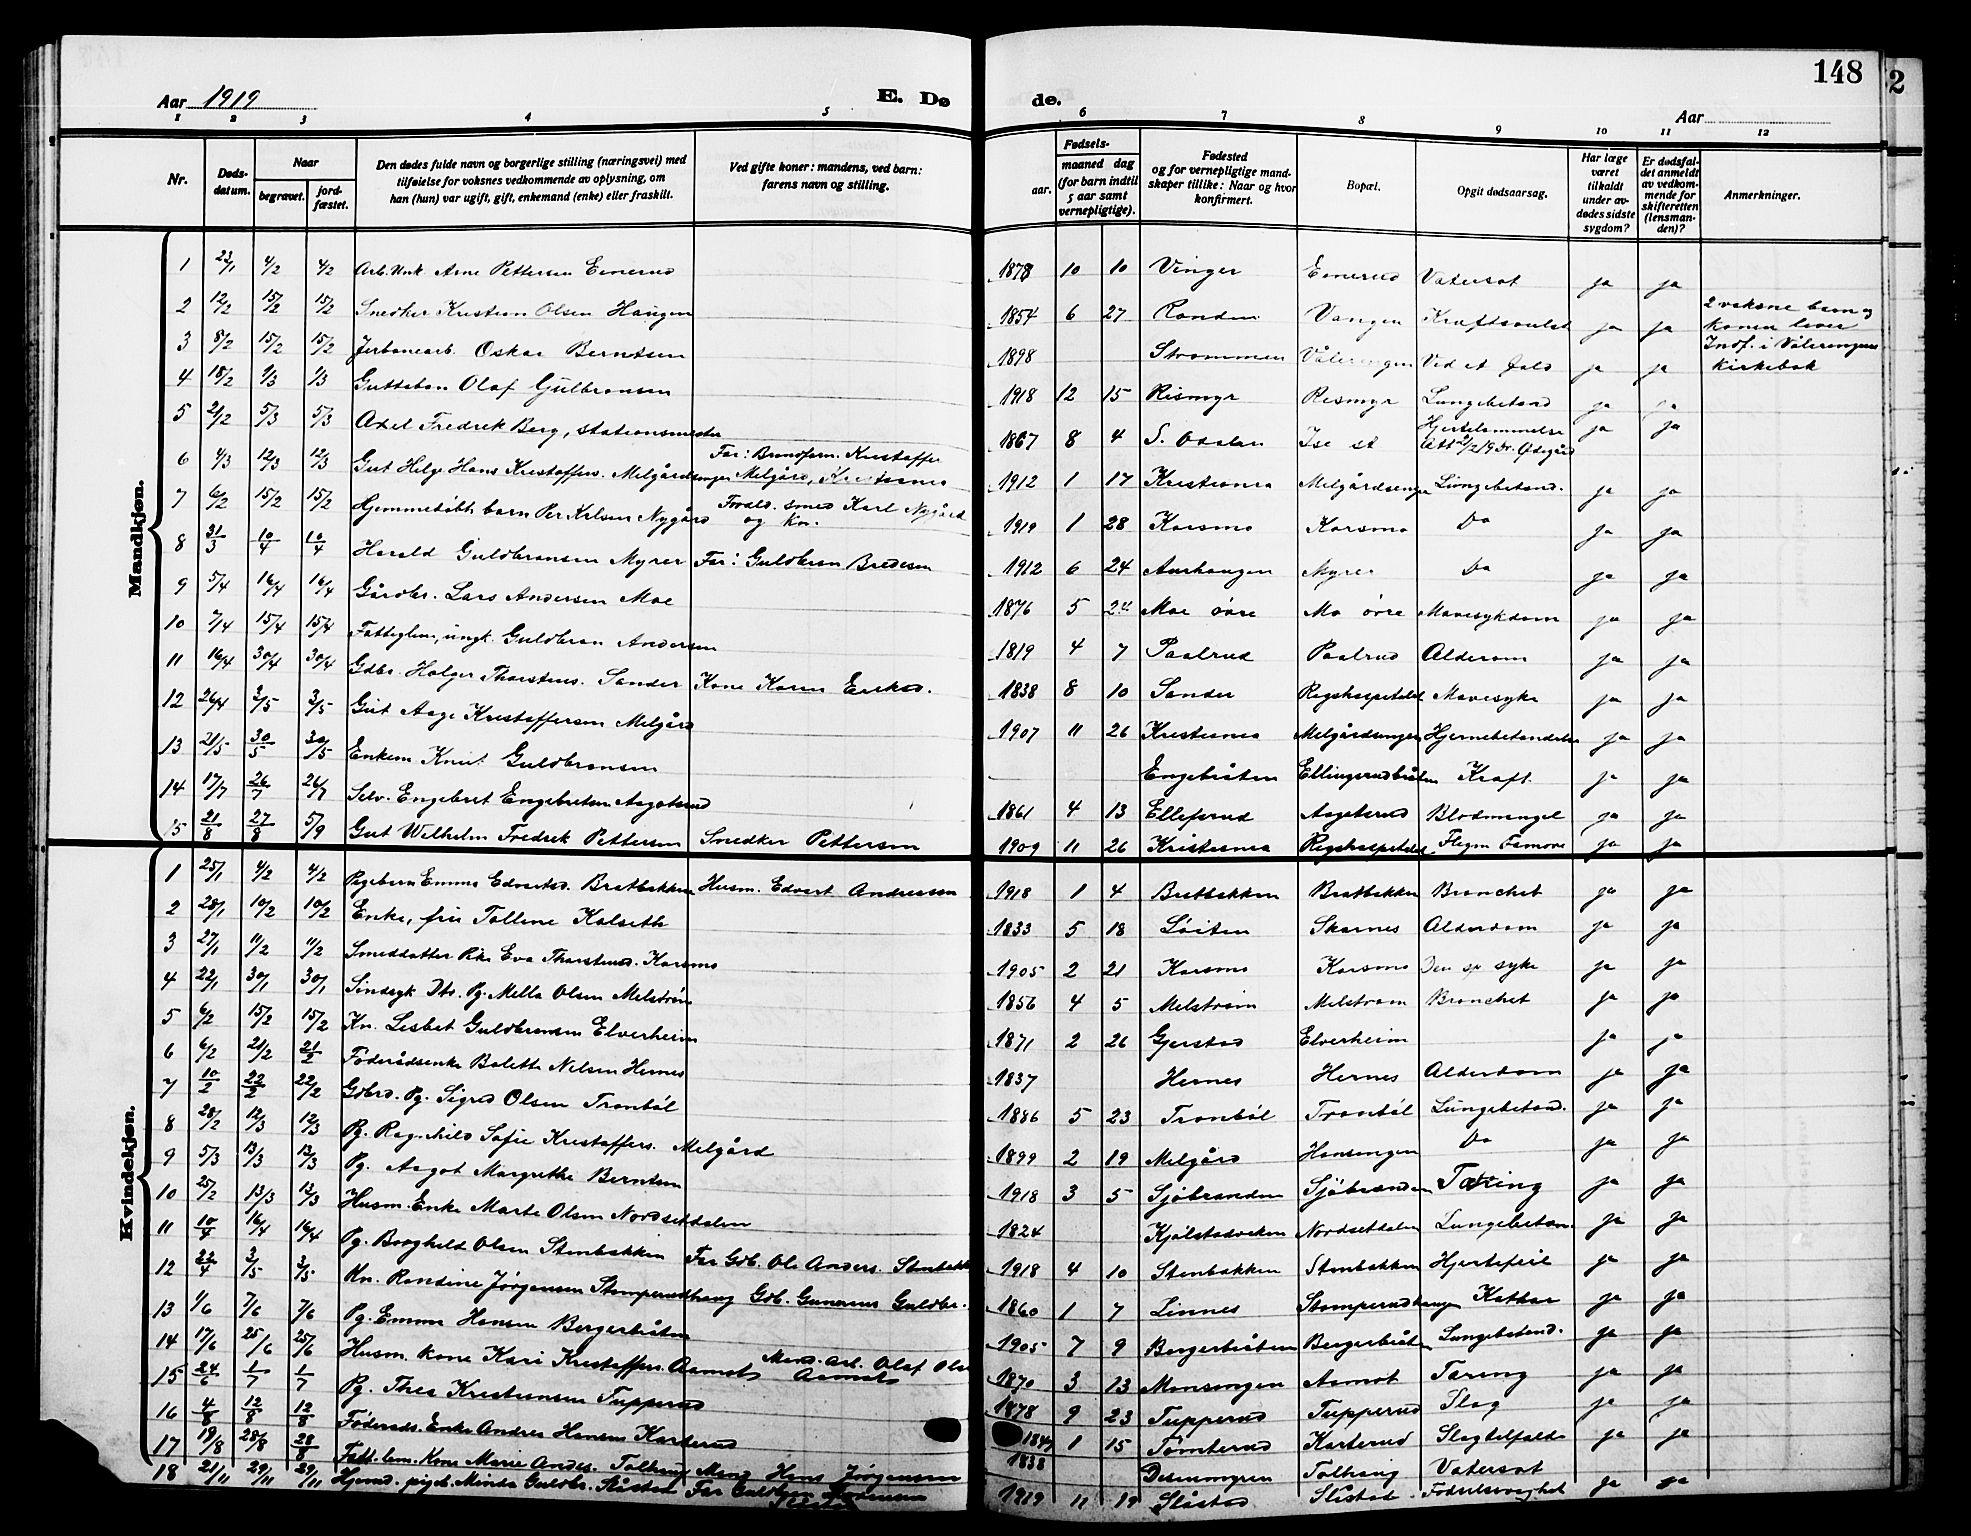 148
2
Aar 1919
E. Dø
de.
Aar
1 2 3 4 5 6 7 8 9 10 11 12
Nr.
Døds-
datum.
Naar
begravet.
jord-
fæstet.
Den dødes fulde navn og borgerlige stilling (næringsvei) med
tilføielse for voksnes vedkommende av oplysning, om
han (hun) var ugift, gift, enkemand (enke) eller fraskilt.
Ved gifte koner: mandens, ved barn:
farens navn og stilling.
Fødsels-
aar.
maaned dag
(for barn indtil
5 aar samt
vernepligtige).
Fødested
og for vernepligtige mand-
skaper tillike: Naar og hvor
konfirmert.
Bopæl.
Opgit dødsaarsag.
Har læge
været
tilkaldt
under av-
dødes sidste
sygdom?
Er dødsfal-
det anmeldt
av vedkom-
mende for
skifteretten
(lensman-
den)?
Anmerkninger.
Mandkjøn.
1 23/1 4/2 4/2 Arb. Unk Arne Pettersen Einerud 1878 10 10 Vinger Einerud Vatersot ja ja
2 12/2 15/2 15/2 Snedker Kristian Olsen Haugen 1854 6 27 Vangen Kraftsvulst ja ja 2 voksne barn og
konen lever
3 8/2 15/2 15/2 Jerbanearb. Oskar Berntsen 1898 Strømmen Vålerengen Ved et fald ja ja Indf. i Vålerengens
kirkebok
4 18/2 1/3 1/3 Guttebarn Olaf Gulbransen 1918 12 15 Rismyr Rismyr Lungebetend ja ja
5 21/2 5/3 5/3 Axel Fredrik Berg, stationsmester 1867 8 4 S. Odalen Ise st Hjertelammelse ja ja
6 4/3 12/3 12/3 Gut Helge Hans Kristoffers. Melgårdsenger Far: Kristoffer
Melgård, Kristiania 1912 1 17 Kristiania Melgårdsenger Lungebetend. ja ja
7 6/2 15/2 15/2 Hjemmedøbt barn Per Karlsen Nygård Karl Nygård
og Kon. 1919 1 28 Korsmo Korsmo Do ja ja
8 31/3 10/4 10/4 Harald Guldbransen Myrer Far: Guldbran Bredesen 1912 6 24 Aurhaugen Myrer Do ja ja
9 5/4 16/4 16/4 Gårdbr. Lars Andersen Moe 1876 5 24 Moe øvre Mo øvre Mavesykdom ja ja
10 7/4 15/4 15/4 Fattiglem, ungk. Guldbran Andersen 1819 4 7 Paalrud Paalrud Alderdom ja ja
11 16/4 30/4 30/4 Gdbr. Holger Thorstens. Sander Kone Karen Eriksd. 1838 8 10 Sander Rigshospitalet Mavesyke ja ja
12 26/4 3/5 3/5 Gut Aage Kristoffersen Melgård 1907 11 26 Kristiania Melgårdsengen Hjernebetændelse ja ja
13 21/5 30/5 30/5 Enkem Knut Guldbransen Engebråten Ellingsrudbråten Kræft. ja ja
14 17/7 26/7 26/7 Selv. Engebret Engebretsen Aagotsrud 1861 4 13 Ellefsrud Aagotsrud Blodmangel ja ja
15 21/8 27/8 5/9 Gut Wilhelm Fredrik Pettersen Snedker Pettersen 1909 11 26 Kristiania Rigshospitalet ja ja
Kvindekjøn.
1 25/1 4/2 4/2 Pigebarn Emma Edvartsd. Bratbakken Husm. Edvart Andreassen 1918 1 4 Bratbakken Bratbakken Bronchit ja ja
2 28/1 10/2 10/2 Enke, fru Tolline Kalseth 1833 5 18 Løiten Skarnes Alderdom ja ja
3 27/1 11/2 11/2 Smeddatter Pike Eva Thorstensd. Korsmo 1905 2 21 Korsmo Korsmo Den sp syke ja ja
4 22/1 30/1 30/1 Sindsyk Dtr. Pg. Mella Olsen Melstrøm 1856 4 5 Melstrøm Melstrøm Bronchit ja ja
5 6/2 15/2 15/2 Kn. Lisbet Guldbransen Elverheim 1871 2 26 Gjerstad Elverheim ja ja
6 6/2 21/2 21/2 Føderådsenke Bolette Nilsen Hernes 1837 Hernes Hernes Alderdom ja ja
7 10/2 22/2 22/2 Gdbrd. Pg. Sigrid Olsen Tronbøl 1886 5 23 Tronbøl Tronbøl Lungebetend. ja ja
8 28/2 12/3 12/3 Pg. Ragnhild Sofie Kristoffers. Melgård 1899 2 19 Melgård Hansengen Do ja ja
9 5/3 13/3 13/3 Pg. Aagot Margrethe Berntsen 1918 3 5 Sjøbranden Sjøbranden Tæring ja ja
10 25/2 13/3 13/3 Husm. Enke Marte Olsen Nordsetdalen 1824 Kjølstadveken Nordsetdalen Lungebetæn. ja ja
11 10/4 16/4 16/4 Pg. Borghild Olsen Stenbakken Far Gdb. Ole Anders. Stenbakk 1918 4 10 Stenbakken Stenbakken Hjertefeil ja ja
12 22/4 3/5 3/5 Kn. Randine Jørgensen Stomperudhaug Gdb. Gunerius Guldbr. 1860 1 7 Linnes Stomperudhaugen ja ja
13 1/6 7/6 7/6 Pg. Emma Hansen Bergerbråten 1905 7 9 Bergerbråten Bergerbråten Lungebetend. ja ja
14 17/6 25/6 25/6 Husm. kone Kari Kristoffers. Aamot Mand. arb. Olaf Ols
Aamot 1870 3 13 Monsengen Aamot Tæring ja ja
15 24/6 1/7 1/7 Pg. Thea Kristiansen Tupperud 1878 9 23 Tupperud Tupperud Slag ja ja
16 4/8 12/8 12/8 Føderåds. Enke Andrea Hansen Karterud 1847 1 15 Tomterud Karterud Slagtilfælde ja ja
17 19/8 28/8 28/8 Fatt. lem. Kone Marie Anders. Tolhaug Mand Hans Jørgensen 1838 Disenmyren Tolhaug Vatersot ja ja
18 21/11 29/11 29/11 Hjemd. pigeb. Minda Guldbr. Slåstad Far Guldbran 1919 11 19 Slåstad Slåstad Fødselssvaghet